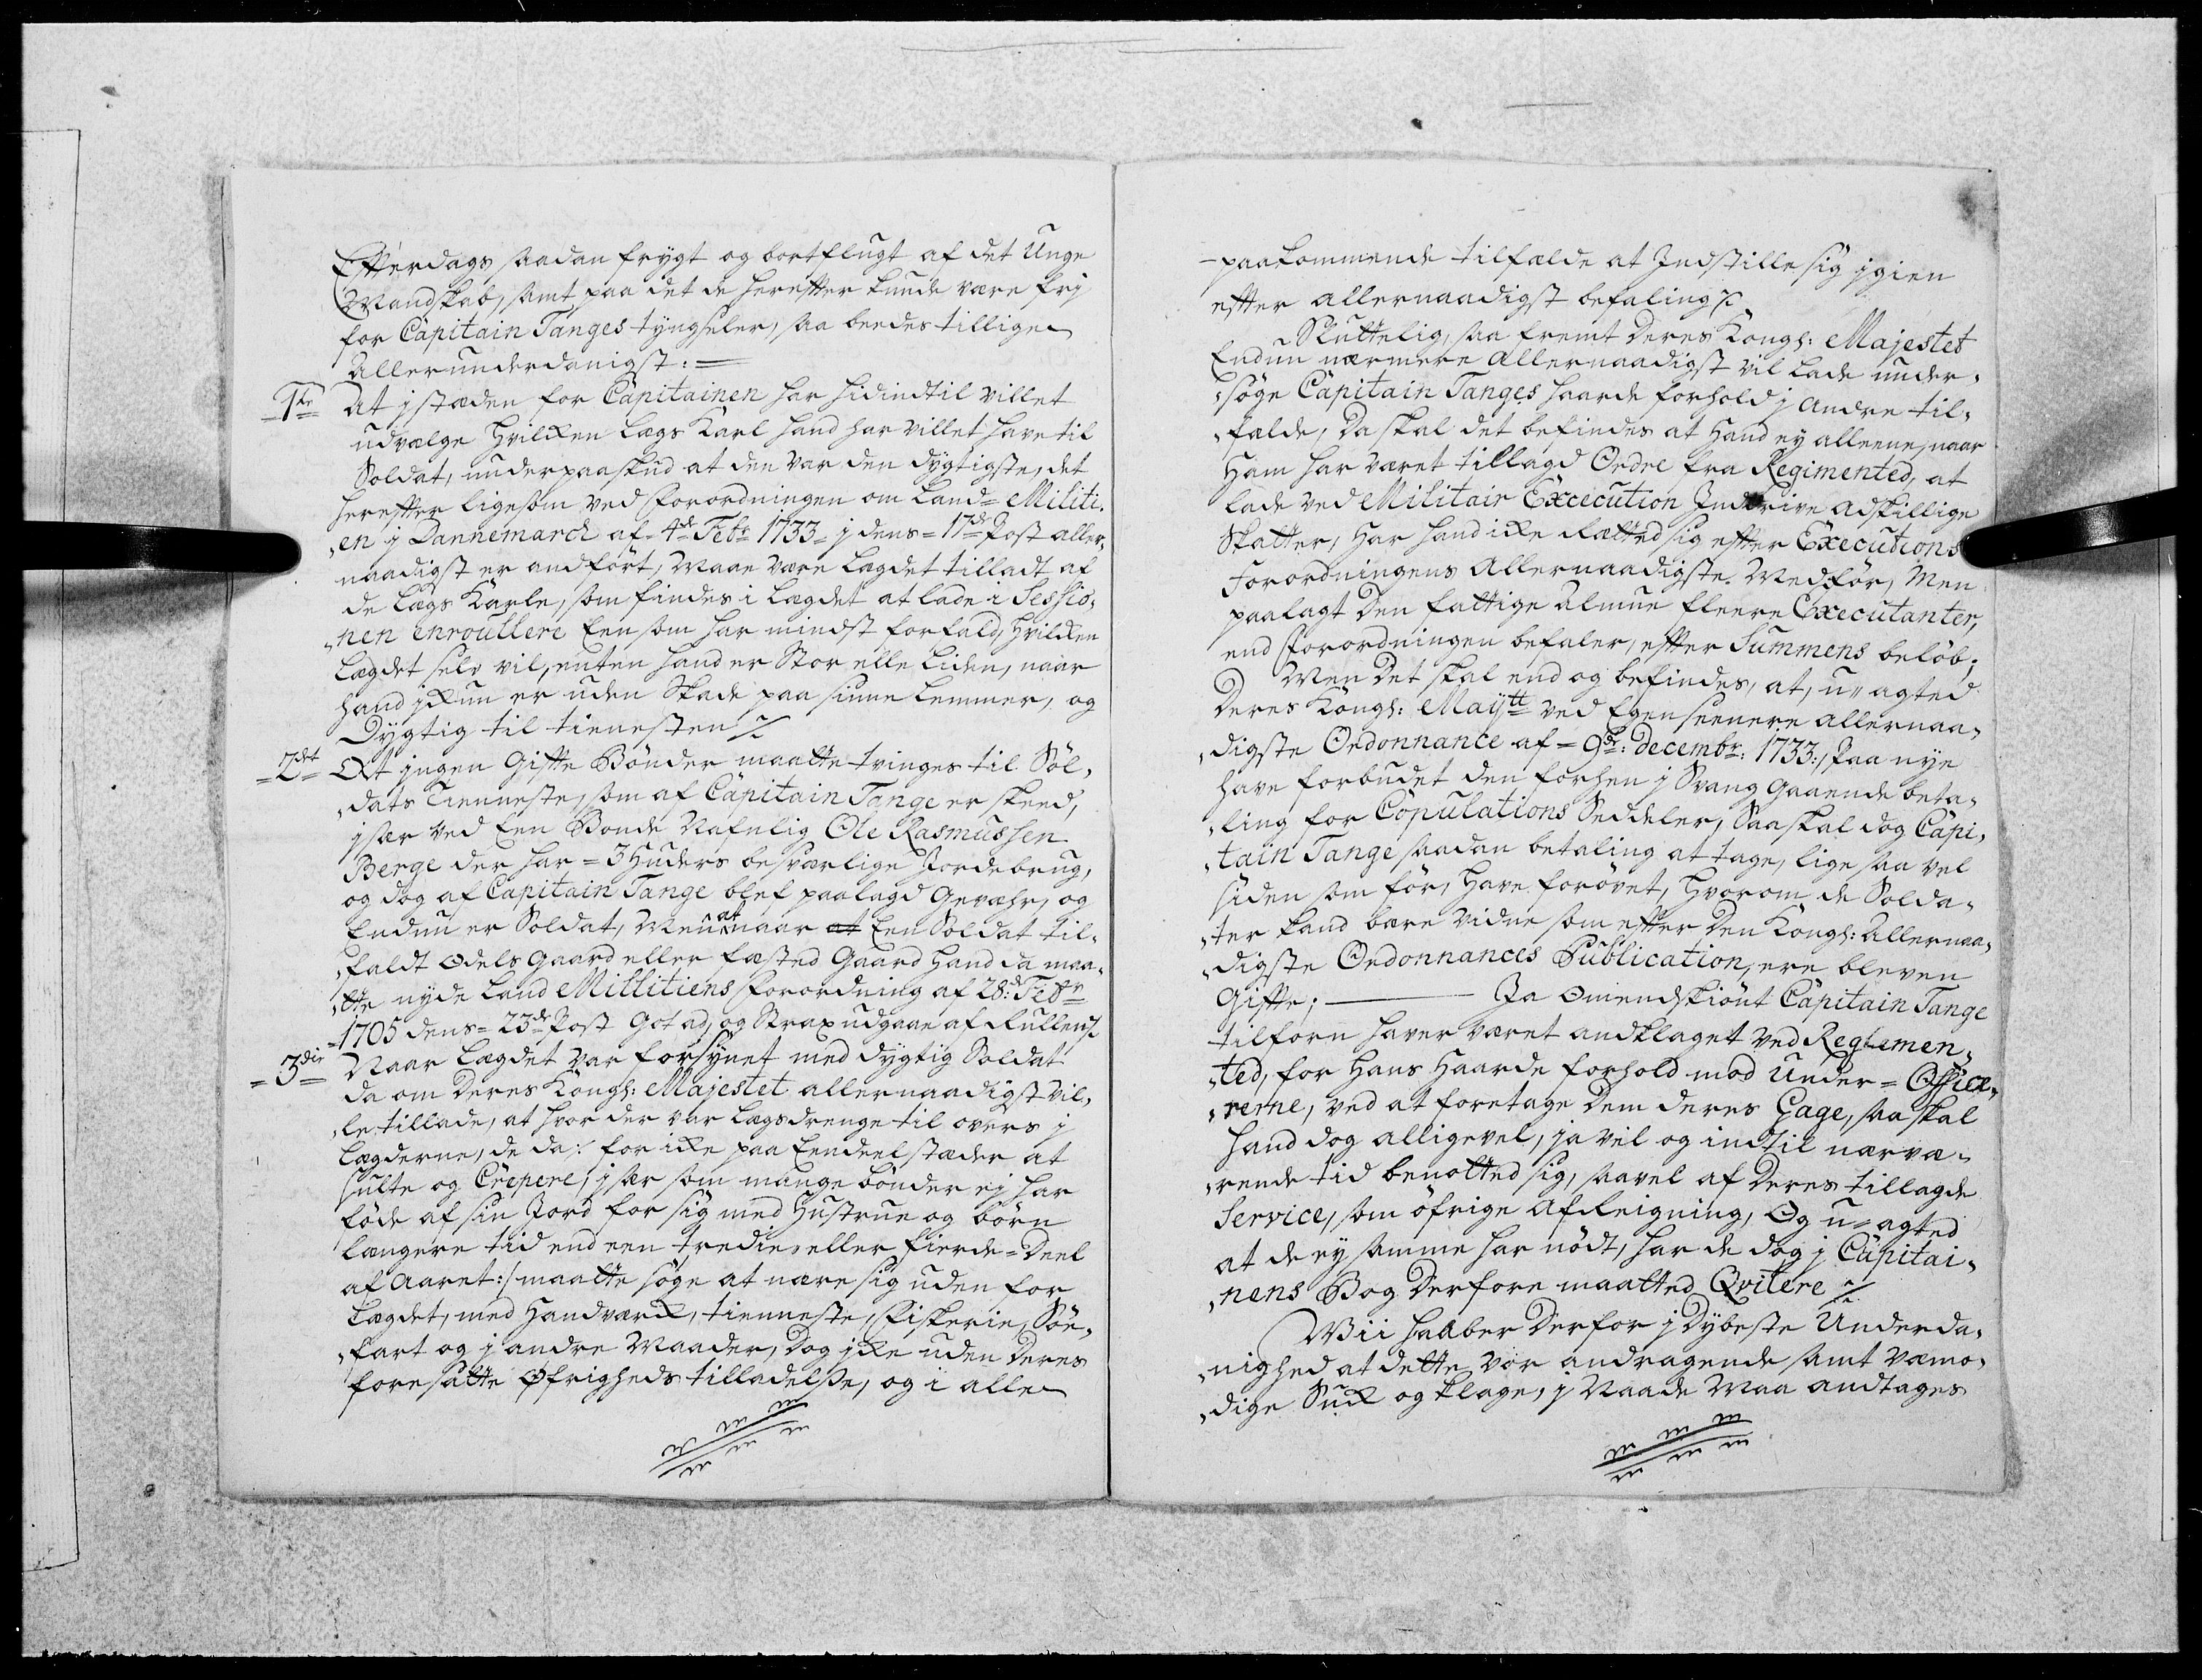 Efterdags saadan frygt og bortflugt af det Unge
Mandskab, samt paa det de herefter kunde være frj
for Capitain Tanges tyngseler, saa beedes tillige
Allerunderdanigst:=
1te At j stæden for Capitainen har hidindtil villet
udvælge hvilken Lægs Karl hand har villet have til
Soldat, under paaskud at den var den dygtigste, det
herefter ligesom ved forordningen om Land= Militi-
„en j Dannemarck af= 4de Febr 1733= j dens= 17de Post aller„
naadigst er andført, Maae være Lægdet tilladt af
de Lægs Karle, som findes i Lægdet at lade i Sessio„
„nen enroullere Een som har mindst forfald, hvilken
Lægdet selv vil, enten hand er Stor elle Liden, naar
hand jkkun er uden Skade paa sinne Lemmer, og
Dygtig til tienesten ⁒
=2det= At jngen Gifte Bönder maatte tvinges til Sol„
„dats Tienneste, som af Capitain Tange er skeed,
jsær ved Een Bonde Nafnlig Ole Rasmussen
Berge der har= 3 Huders besværlige Jordebrug,
og dog af Capitain Tange blef paalagd Gevæhr, og
Endnu er Soldat, Men at naar at Een Soldat til„
„faldt Odels Gaard eller fæsted Gaard hand da maa„
„tte nyde Land Millitiens forordning af 28: Febr
=1705 dens= 23de Post Got ad, og Strax udgaae af Rullen ⁒
=3die= Naar Lægdet var forsynet med dygtig Soldat
da om Deres Kongl: Majestet allernaadigst vil„
„le tillade, at hvor der var Lægsdrenge til overs j
Lægderne, de da /: for ikke paa Eendeel stæder at
sulte og Crepere, jsær som mange bönder ej har
föde af sin Jord for sig med Hustrue og börn
længere tid end een tredie= eller fierde= Deel
af Aaret :/ maatte söge at nære sig uden for
Lægdet, med Handværk, tienneste, fiskerie, Söe„
„fart og j andre Maader, Dog jkke uden Deres
foresatte Øfrigheds tilladelse, og i alle
-paakommende tilfælde at Jndstille sig jgien
efter allernaadigst befaling ⁒
Sluttelig, saa fremt Deres Kongl: Majestet
Endnu nærmere Allernaadigst vil lade under„
„söge Capitain Tanges haarde forhold j andre til„
„fælde, Da skal det befindes at Hand ey alleene, naar
Ham har været tillagd Ordre fra Regimented, at
lade ved Militair Execution Jnddrive adskillige
Skatter, har hand ikke Rætted sig efter Executions
Forordningens Allernaadigste Medför, Men
paalagt den fattige Almue fleere Executanter,
end forordningen befaler, efter Summens belöb;
Men det skal end og befindes, at, u„agted
Deres Kongl: Maytt ved Egen seenere allernaa„
„digste Ordonnance af= 9de: decembr: 1733:, Paa nye
have forbudet den forhen j Svang Gaaende beta„
„ling for Copulations Seddeler, Saa skal dog Capi„
„tain Tange saadan betaling at tage, lige saa vel
siden som för, have forövet, Hvorom de Solda„
„ter kand bære Vidne som efter Den Kongl: Allernaa„
„digste Ordonnances Publication, ere bleven
Gifte; ——— Ja Omendskiönt Capitain Tange
tilforn haver været andklaget ved Reglemen„
„ted, for Hans Haarde forhold mod Under= Office„
„rerne, ved at foretage dem deres Gage, saa skal
hand dog alligevel, ja vel og indtil nærvæ„
„rende tid benotted sig, saavel af Deres tillagde
Service, som öfrige Afleigning, Og u=agted
at de ey samme har nödt, har de dog j Capitai„
„nens Bog Derfore maatted Qvitere ⁒
Wii haaber Derfor j dybeste Underda„
„nighed at dette vor andragende samt væmo„
„dige Suk og klage, j Naade Maa andtages